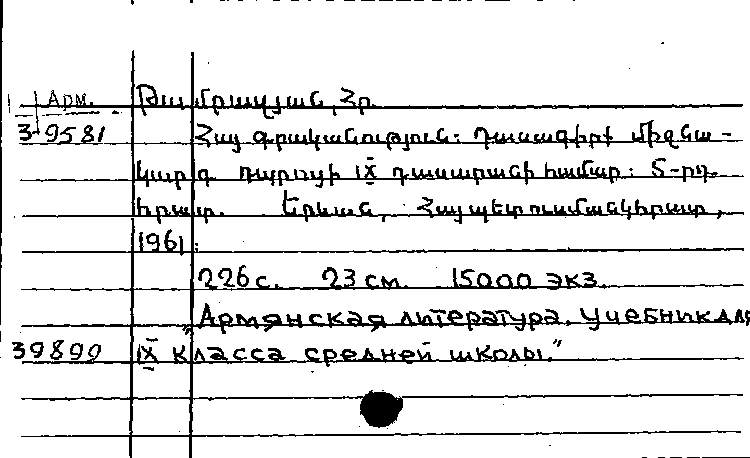 Арм. Թամրազյան, Հր.
3-9581 Հայ գրականություն: Դասագիրք միջնա-
կարգ դպրոցի IX դասարանի համար: 5-րդ
հրատ. Երևան, Հայպետուսմանկհրատ,
1961:
226 с. 23 см. 15000 экз.
„Армянская литература. Учебник для
39899 IX класса средней школы."